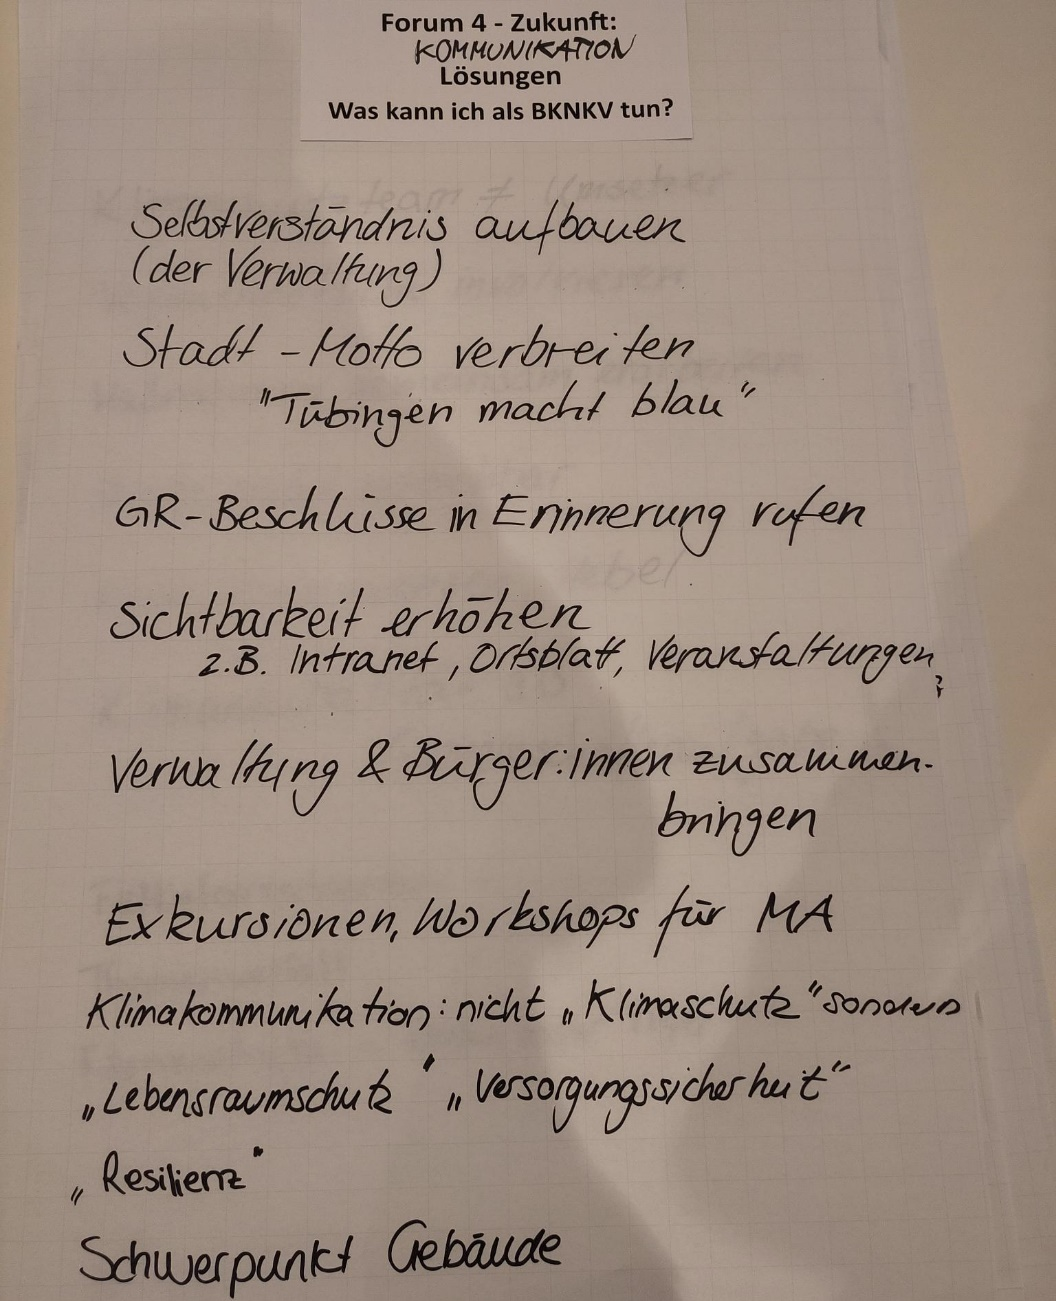 Forum 4 - Zukunft:
KOMMUNIKATION
Lösungen
Was kann ich als BKNKV tun?
Selbstverständnis aufbauen
(der Verwaltung)
Stadt - Motto verbreiten
"Tübingen macht blau"
GR-Beschlüsse in Erinnerung rufen
Sichtbarkeit erhöhen
z.B. Intranet, Ortsblatt, Veranstaltungen,
Verwaltung & Bürger:innen zusammen-
bringen
Exkursionen, Workshops für MA
Klimakommunikation: nicht „Klimaschutz" sondern
„Lebensraumschutz" „Versorgungssicherheit"
„Resilienz"
Schwerpunkt Gebäude